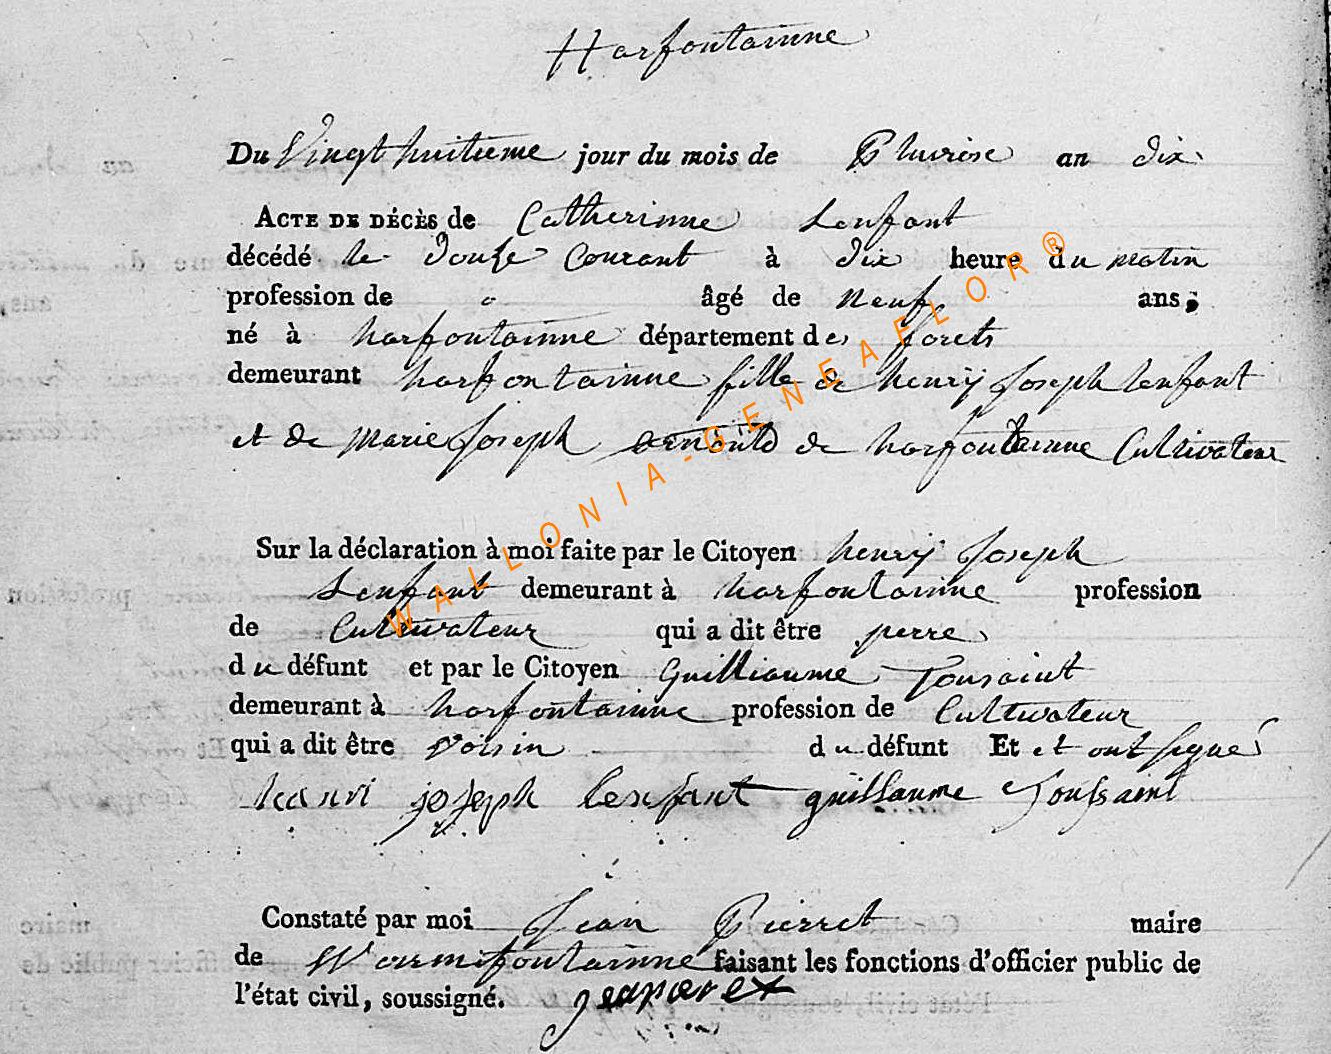 Harfontainne
Du Vingt huitieme jour du mois de Pluviose an dix
ACTE DE DÉCÈS de Catherinne Lenfant
décédé le douze Courant à dix heure du matin
profession de âgé de neuf ans;
né à harfontainne département des forets
demeurant harfontainne fille de henrÿ Joseph lenfant
et de Marie Joseph arnould de harfontainne Cultivateur
Sur la déclaration à moi faite par le Citoyen henrÿ Joseph
Lenfant demeurant à harfontainne profession
de Cultivateur qui a dit être perre
du défunt et par le Citoyen Guilliaume Tousaint
demeurant à harfontainne profession de Cultivateur
qui a dit être voisin du défunt Et et ont signé
henri joseph lenfant guillaume Toussaint
Constaté par moi Jean Pierret maire
de Warmifontainne faisant les fonctions d'officier public de
l'état civil, soussigné.
WALLONIA-GENEAFLOR®